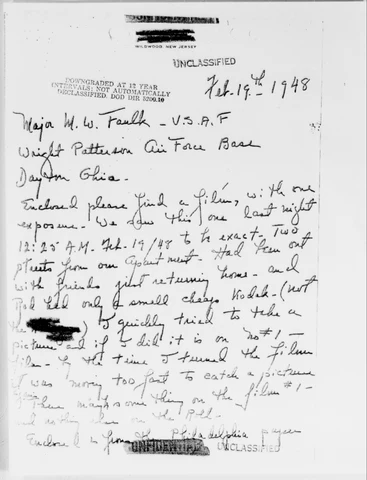 WILDWOOD, NEW JERSEY
UNCLASSIFIED
DOWNGRADED AT 12 YEAR
INTERVALS; NOT AUTOMATICALLY
DECLASSIFIED. DOD DIR 5200.10
Feb. 19th - 1948
Major M. W. Faulk - U.S.A.F
Wright Patterson Air Force Base
Dayton Ohio -
Enclosed please find a film, with one
exposure - We saw this one last night
12:25 A.M. Feb-19/48 to be exact - Two
streets from our apartment - Had been out
with friends just returning home - and
Rod had only a small cheap Kodak - (not
the) I quickly tried to take a
picture and if I did it is on no #1 -
film - By the time I turned the film
it was moving too fast to catch a picture
some thing on the film #1 -
and nothing else on the Roll -
Enclosed is from the Philadelphia paper
CONFIDENTIAL UNCLASSIFIED